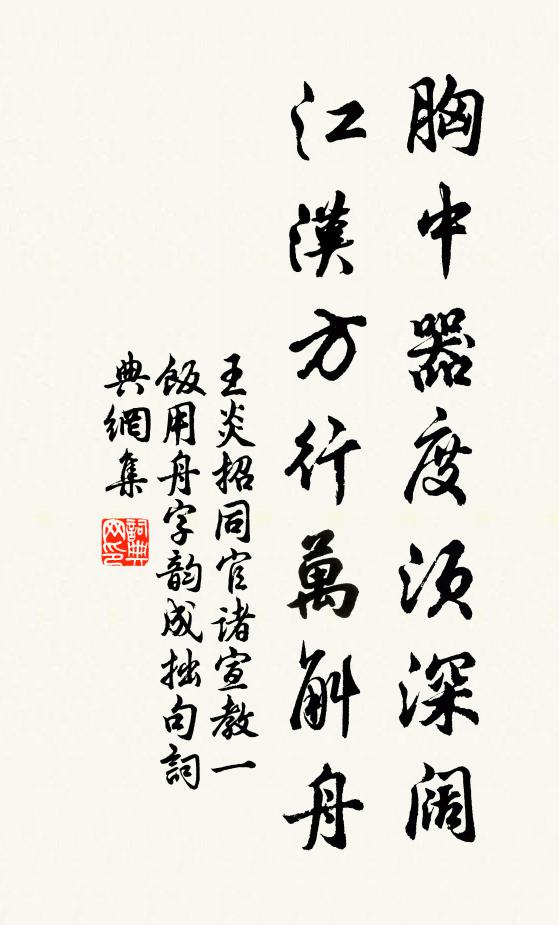 胸中器度須深闊
江漢方行萬斛舟
王炎招同官諸宣教一
飯用舟字韵成拙句詞
典網集
詞典
网印